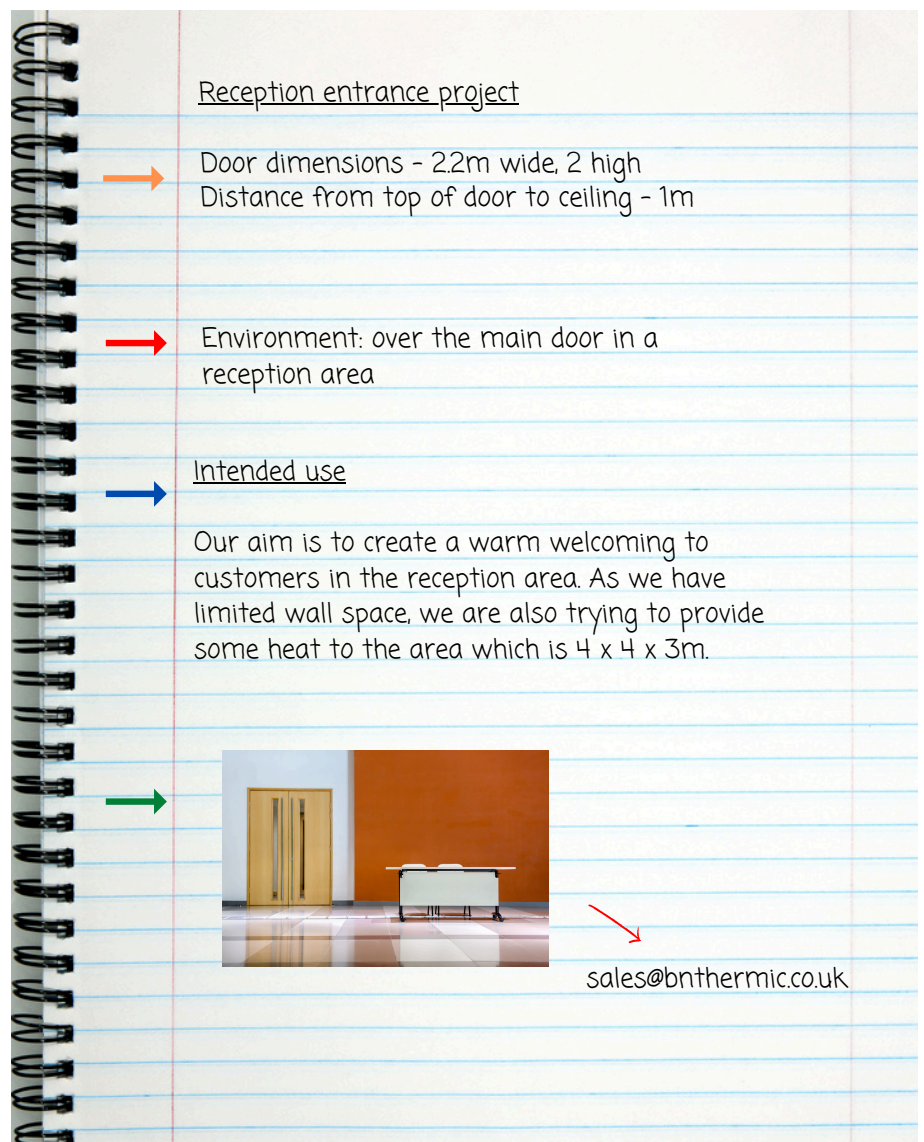 Reception entrance project
Door dimensions - 2.2m wide, 2 high
Distance from top of door to ceiling - 1m
Environment: over the main door in a
reception area
Intended use
Our aim is to create a warm welcoming to
customers in the reception area. As we have
limited wall space, we are also trying to provide
some heat to the area which is 4 x 4 x 3m.
sales@bnthermic.co.uk